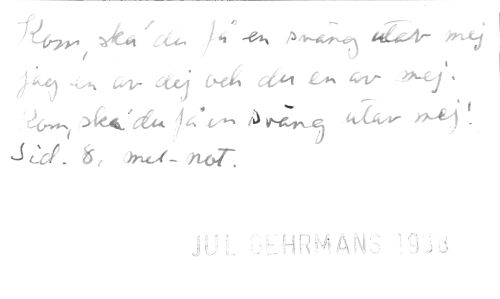 Kom, ska' du få en sväng utav mej
jag en av dej och du en av mej.
Kom, ska' du få en sväng utav mej!
Sid. 8, mel-not.
JUL GEHRMANS 1938